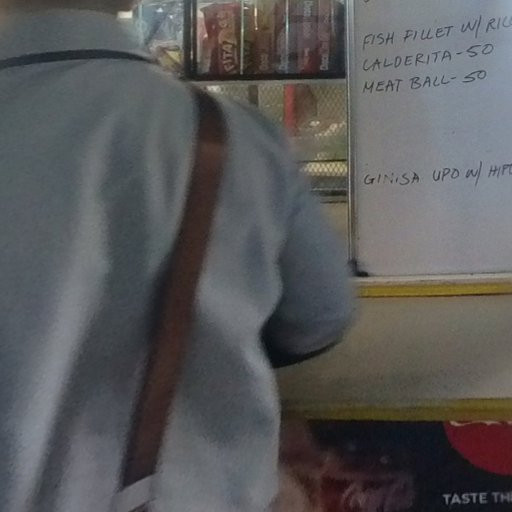 FISH FILLET W/
CALDERITA-50
MEAT BALL-50
GINISA UPO W/
TASTE